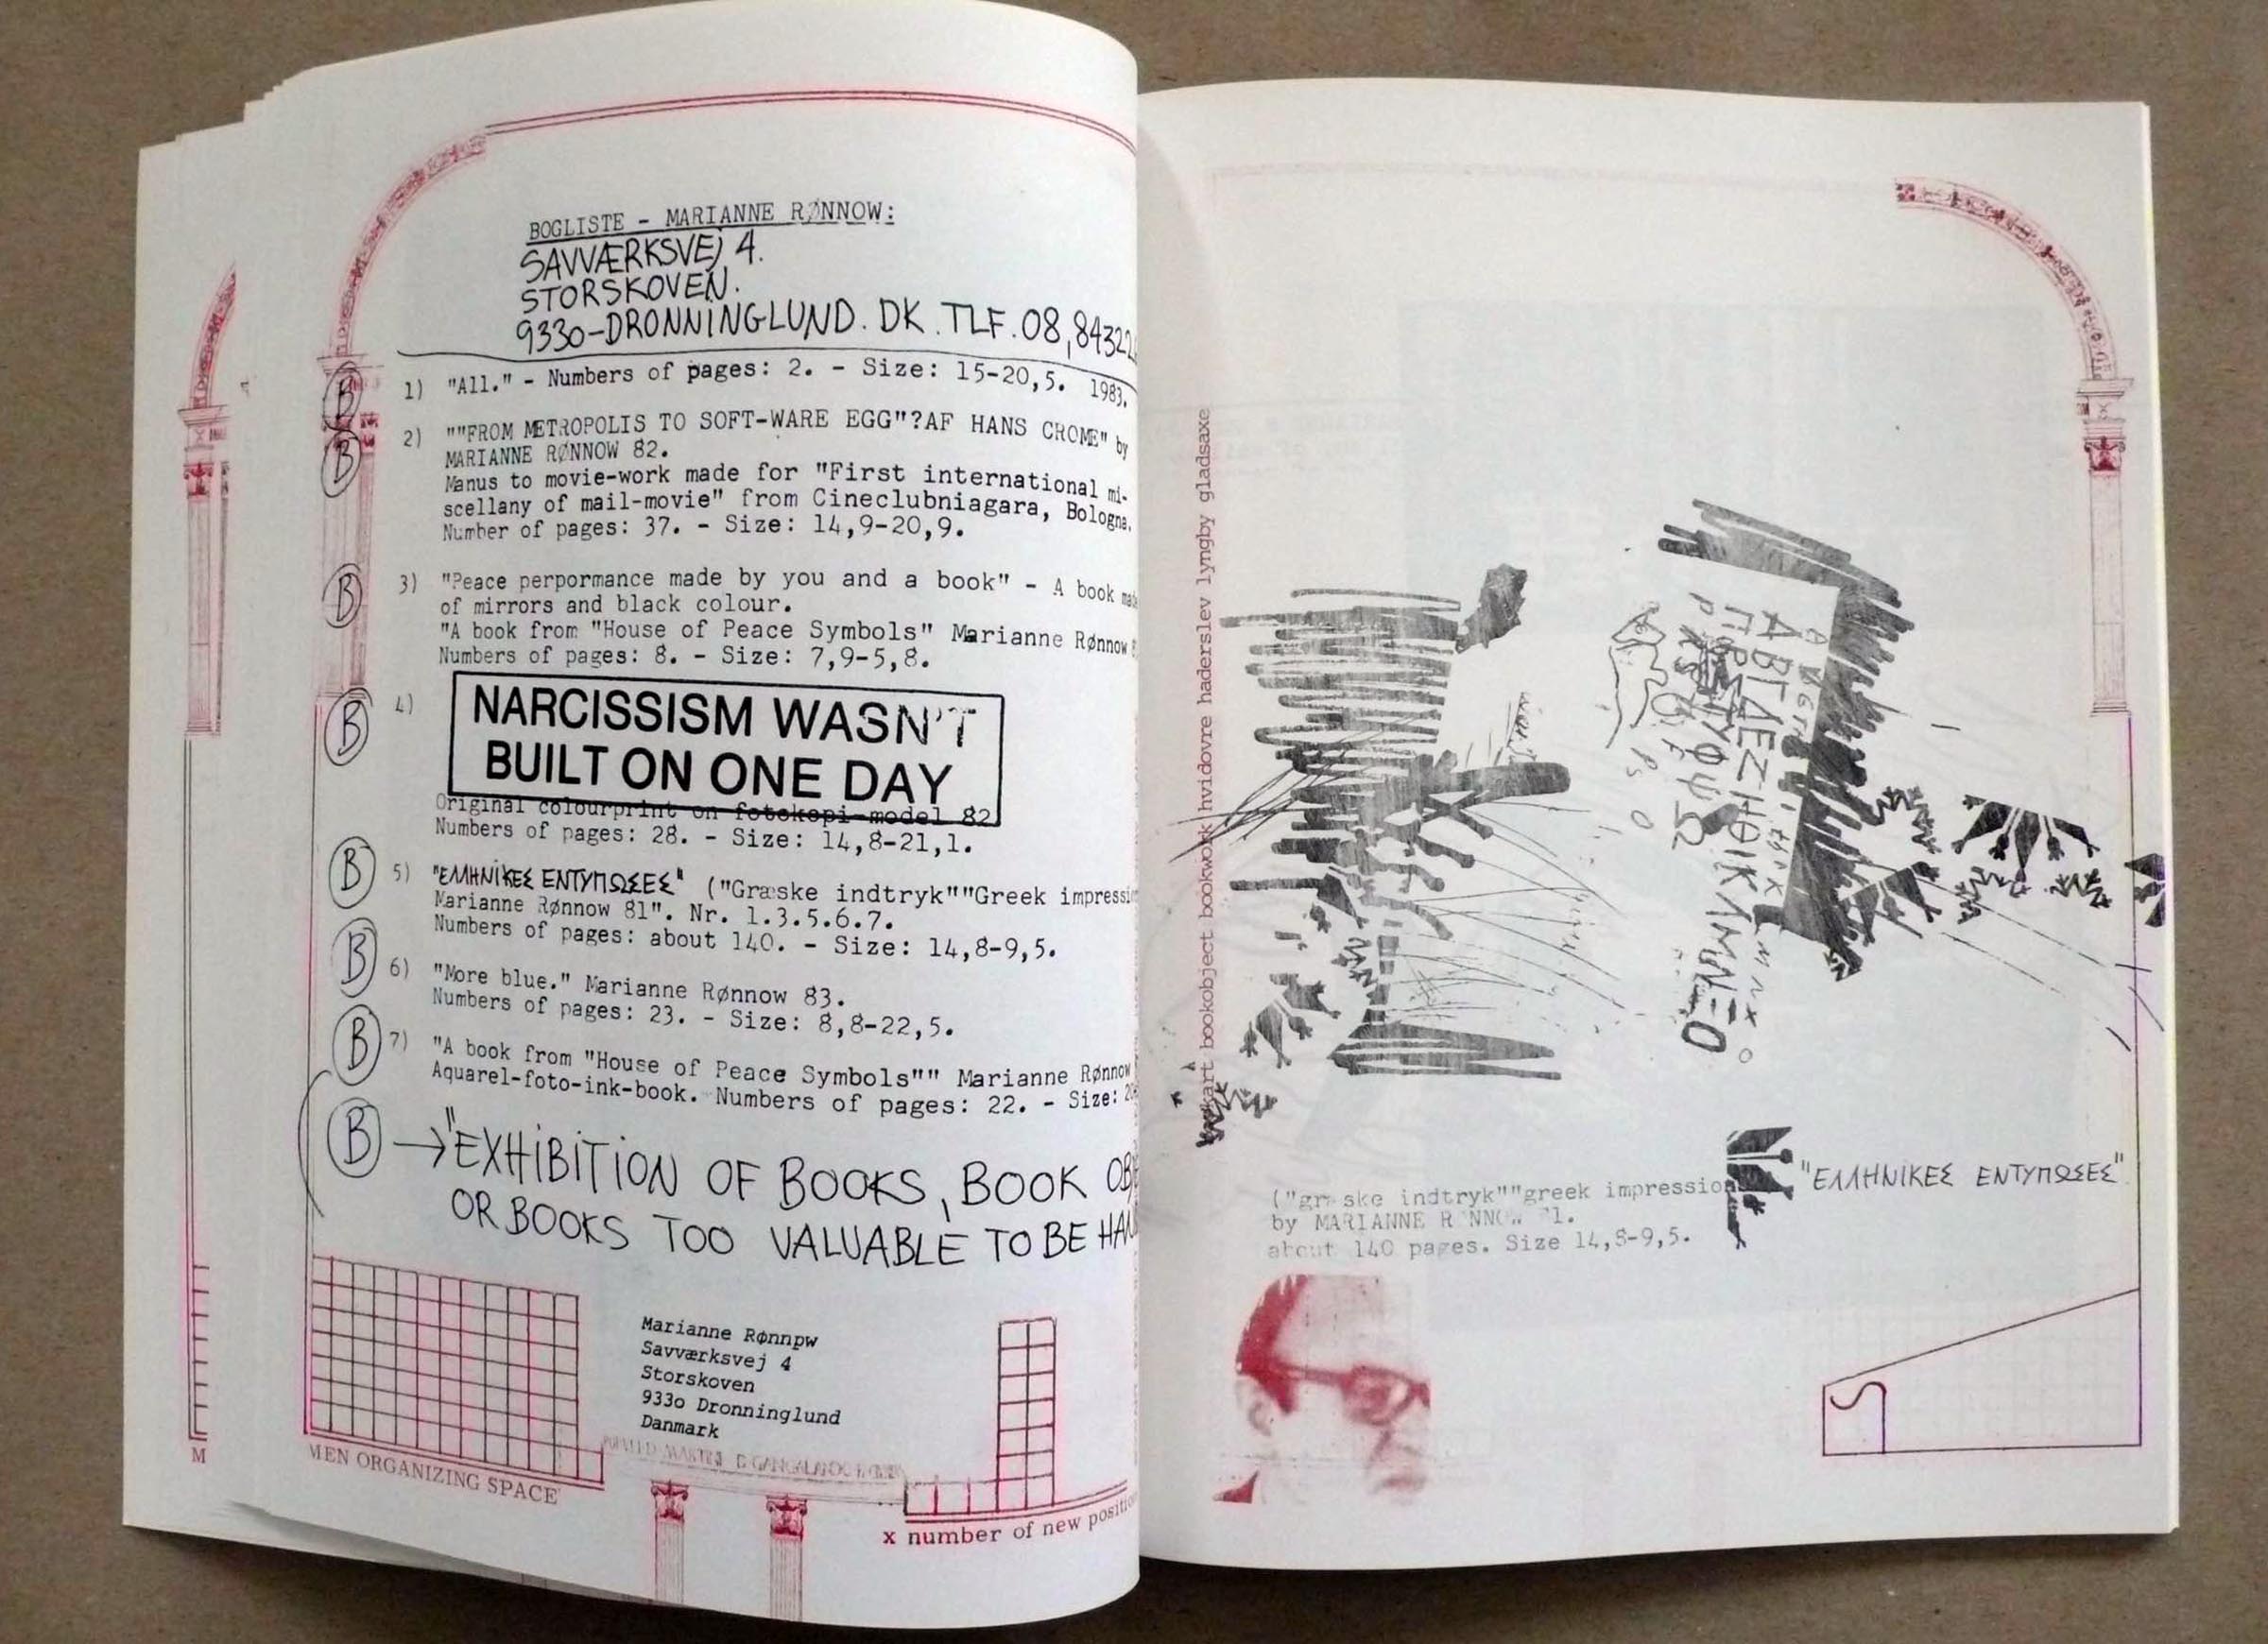 BOGLISTE - MARIANNE RØNNOW:
SAVVÆRKSVEJ 4.
STORSKOVEN.
9330-DRONNINGLUND. DK. TLF. 08,84322
1) "All." - Numbers of pages: 2. - Size: 15-20,5. 1983.
2) ""FROM METROPOLIS TO SOFT-WARE EGG"?AF HANS CROME" by
MARIANNE RØNNOW 82.
Manus to movie-work made for "First international mi-
scellany of mail-movie" from Cineclubniagara, Bologna.
Number of pages: 37. - Size: 14,9-20,9.
3) "Peace perpormance made by you and a book" - A book
of mirrors and black colour.
"A book from "House of Peace Symbols" Marianne Rønnow
Numbers of pages: 8. - Size: 7,9-5,8.
4) NARCISSISM WASN'T
BUILT ON ONE DAY
Original colourprint on fotokopi-model 82
Numbers of pages: 28. - Size: 14,8-21,1.
5) "ΕΛΛΗΝΙΚΕΣ ΕΝΤΥΠΩΣΕΣ" ("Græske indtryk""Greek impressi
Marianne Rønnow 81". Nr. 1.3.5.6.7.
Numbers of pages: about 140. - Size: 14,8-9,5.
6) "More blue." Marianne Rønnow 83.
Numbers of pages: 23. - Size: 8,8-22,5.
7) "A book from "House of Peace Symbols"" Marianne Rønnow
Aquarel-foto-ink-book. Numbers of pages: 22. - Size:
B → "EXHIBITION OF BOOKS, BOOK OB
OR BOOKS TOO VALUABLE TO BE HAN
B
B
B
B
B
B
B
Marianne Rønnpw
Savværksvej 4
Storskoven
933o Dronninglund
Danmark
M
MEN ORGANIZING SPACE
x number of new positio
art bookobject bookwork hvidovre haderslev lyngby gladsaxe
ΑΒΓΔΕΖΗΘΙΚΛΜΝΞΟ
("græske indtryk""greek impression "ΕΛΛΗΝΙΚΕΣ ΕΝΤΥΠΩΣΕΣ"
by MARIANNE RØNNOW
about 140 pages. Size 14,8-9,5.